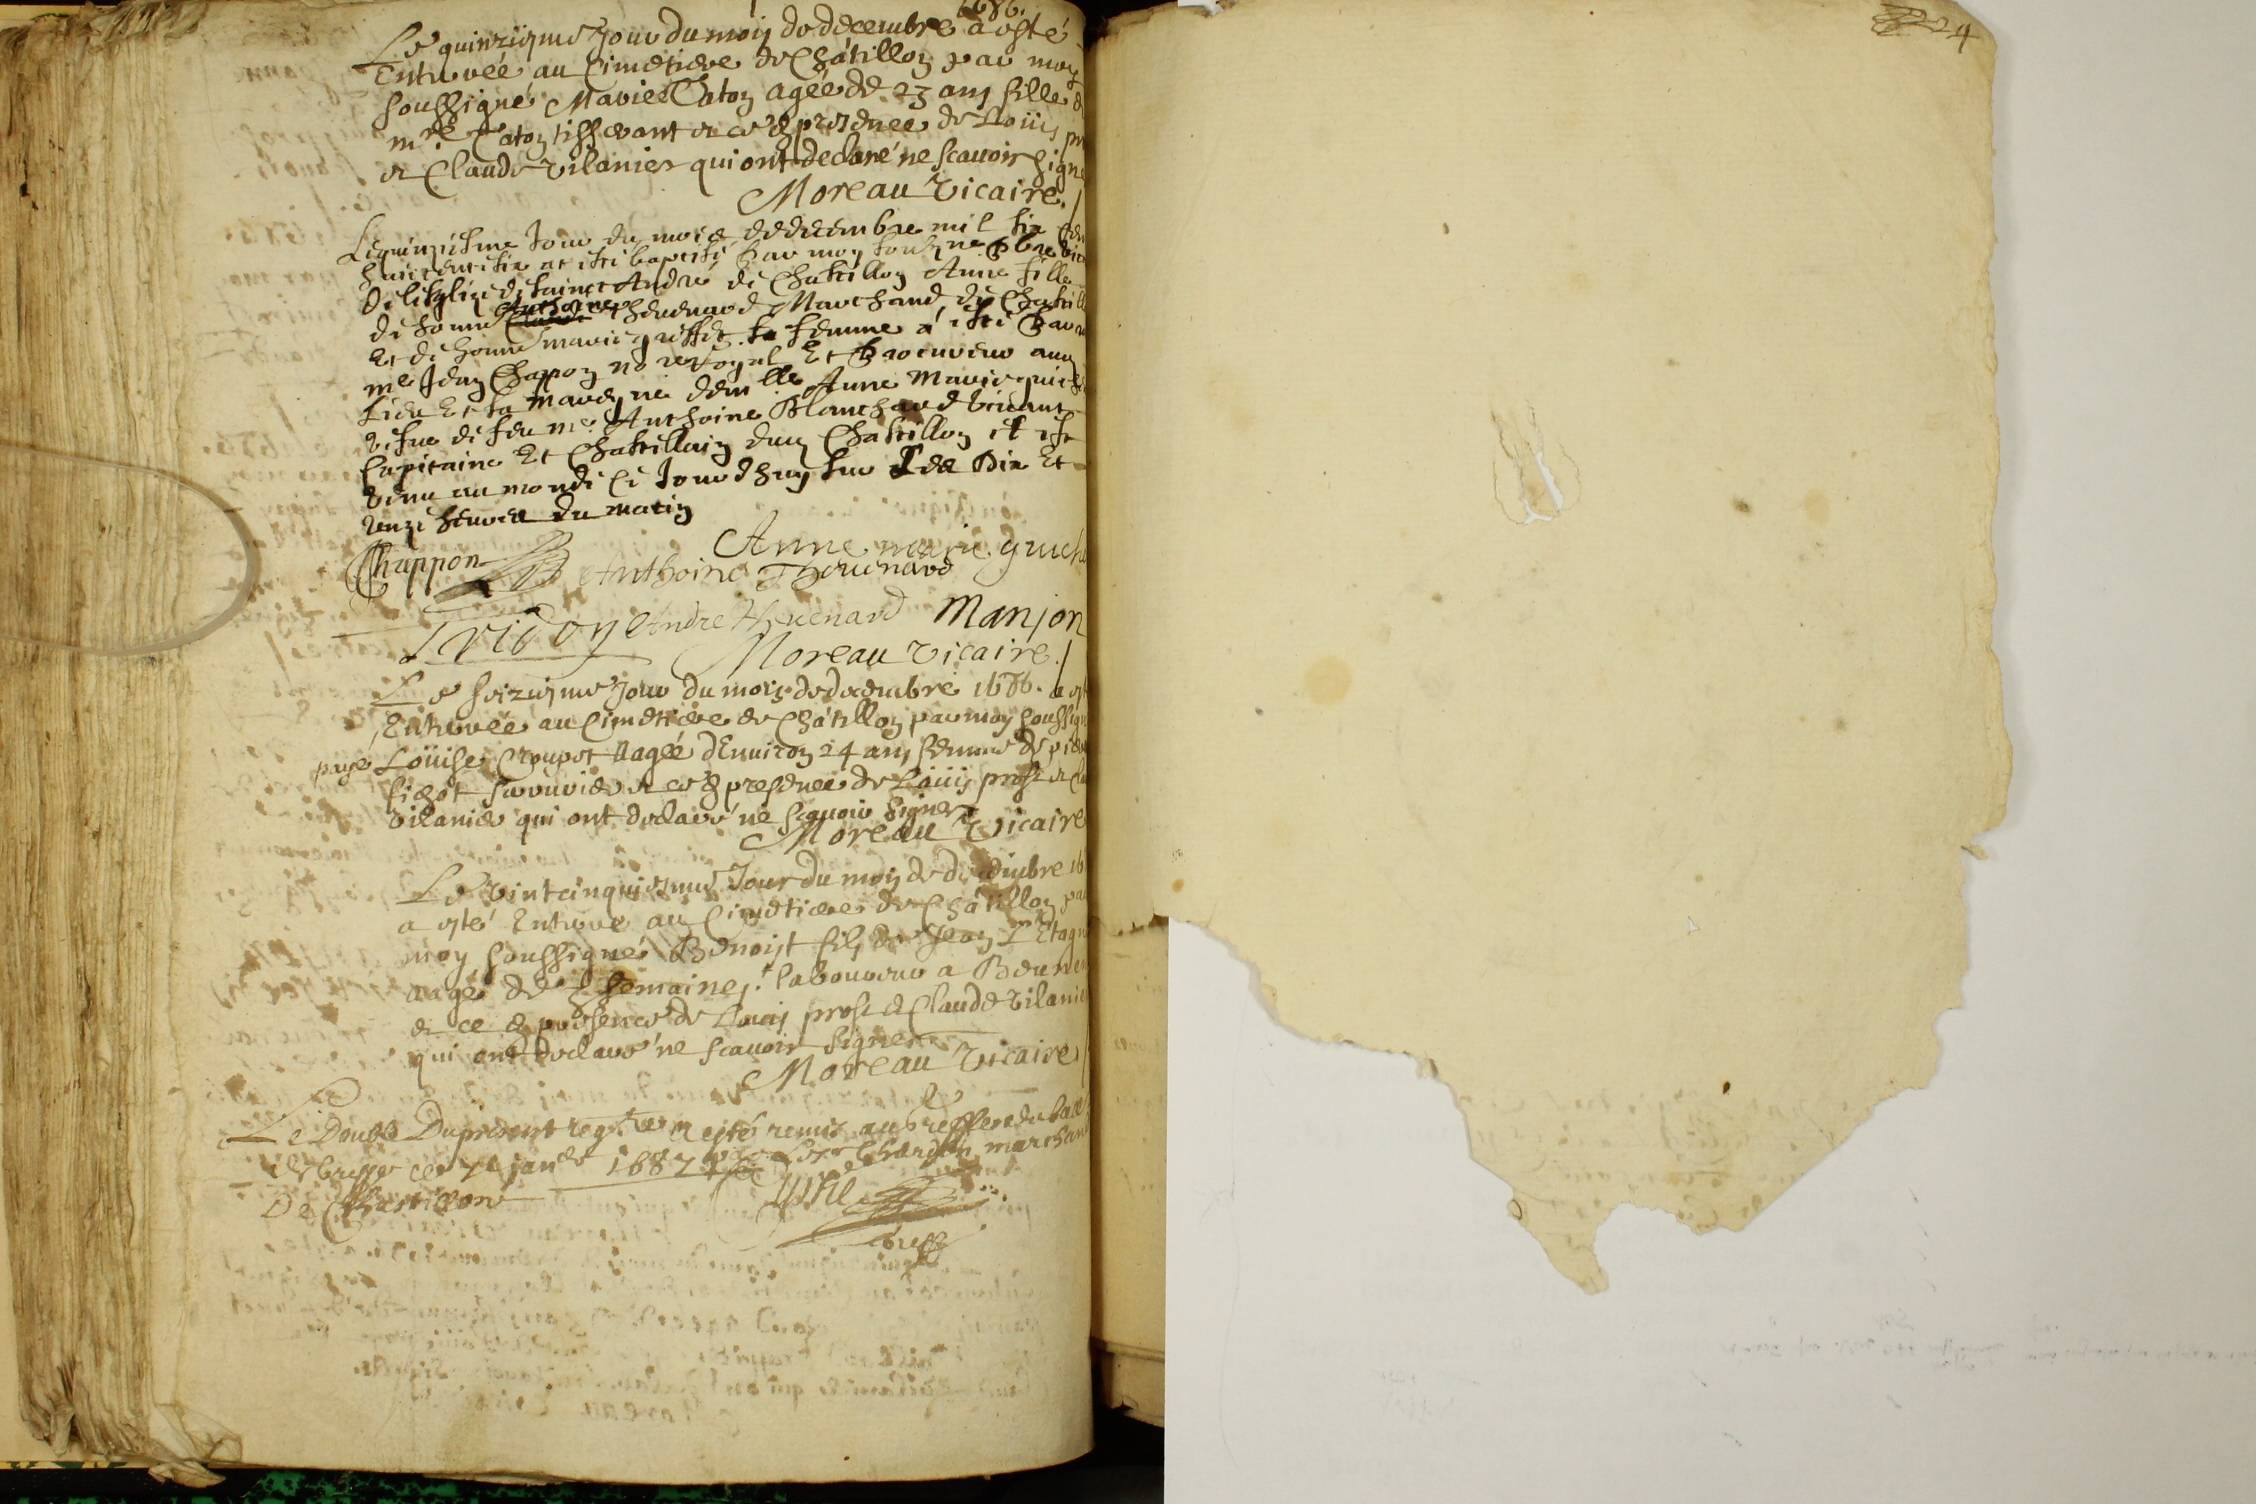 1686.
Le quinziesme Jour du mois de decembre a esté
Enterreé au Cimetiere de Châtillon par moy
soussigné Marie Caton ageé de 23 ans fille de
mre Caton tisserant et ce en presence de Loüis
et Claude vilanier qui ont declaré ne scauoir signe
Moreau vicaire.
Le quinziesme Jour du mois de decembre mil six cen
huictente six at esté baptisé par moy soubzne pbre vic
de lesglize de sainct André de Chastillon Anne fille
de honne Anthoine Theuenard Marchand de Chastill
Et de honne marie griffet sa femme a esté
me Jean Chapon nore Royal Et procureur aud
Lieu Et sa Maregne demlle Anne Marie guich
vefue de feu me Anthoine Blanchard viuant
Capitaine Et Chastellain dud Chastillon et est
venu au monde Ce Jourdhuy sur Les Dix Et
unze heures du matin
Chappon
Anne marie guich
Anthoine Theuenard
Tridon
Andre Theuenard
Manjon
Moreau vicaire.
Le seiziesme Jour du mois de decembre 1686. a est
Enterreé au Cimetiere de Châtillon par moy soussign
payé Loüise Croupet aageé d'Enuiron 24 ans femme de
et ce en presence de Loüis prost et Cla
vilanier qui ont declaré ne scauoir signer
Moreau Vicaire
Le vintcinquiesme Jour du mois de decembre 16
a esté Enterré au Cimetiere de Châtillon par
moy soussigné Benoist fils de Jean
aagé de semaines. laboureur a
et ce en presence de Louis prost et Claude vilanie
qui ont declaré ne scauoir signer
Moreau vicaire
Le Double Du present regtre a esté remis au greffe du bail
de bresse ce janer 1687 par marchand
De Chastillon
24